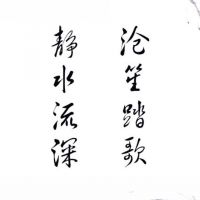 沧笙踏歌
静水流深